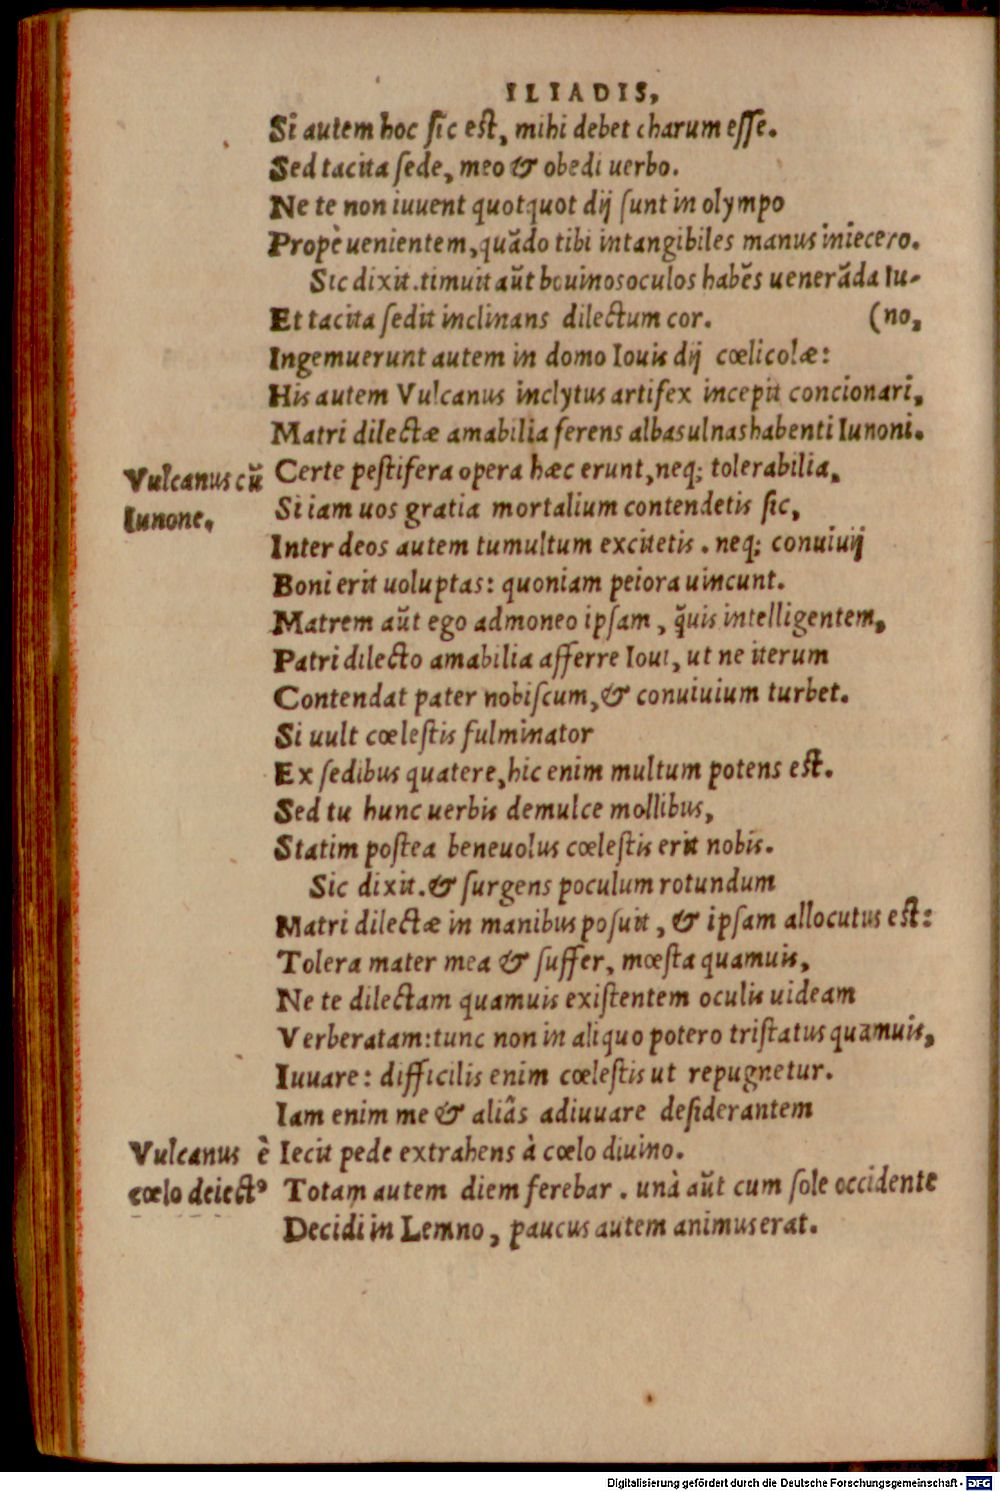 ILIADIS,
Si autem hoc ſic eſt, mihi debet charum eſſe.
Sed tacita ſede, meo & obedi uerbo.
Ne te non iuuent quotquot dij ſunt in olympo
Propè uenientem, quãdo tibi intangibiles manus iniecero.
Sic dixit. timuit aũt bouinos oculos habẽs uenerãda Iu-
Et tacita ſedit inclinans dilectum cor. (no,
Ingemuerunt autem in domo Iouis dij cœlicolæ:
His autem Vulcanus inclytus artifex incepit concionari,
Matri dilectæ amabilia ferens albas ulnas habenti Iunoni.
Vulcanus cũ
Iunone.
Certe peſtifera opera hæc erunt, neq; tolerabilia,
Si iam uos gratia mortalium contendetis ſic,
Inter deos autem tumultum excitetis. neq; conuiuij
Boni erit uoluptas: quoniam peiora uincunt.
Matrem aũt ego admoneo ipſam, q̃uis intelligentem,
Patri dilecto amabilia afferre Ioui, ut ne iterum
Contendat pater nobiſcum, & conuiuium turbet.
Si uult cœleſtis fulminator
Ex ſedibus quatere, hic enim multum potens eſt.
Sed tu hunc uerbis demulce mollibus,
Statim poſtea beneuolus cœleſtis erit nobis.
Sic dixit. & ſurgens poculum rotundum
Matri dilectæ in manibus poſuit, & ipſam allocutus eſt:
Tolera mater mea & ſuffer, mœſta quamuis,
Ne te dilectam quamuis exiſtentem oculis uideam
Verberatam: tunc non in aliquo potero triſtatus quamuis,
Iuuare: difficilis enim cœleſtis ut repugnetur.
Iam enim me & aliâs adiuuare deſiderantem
Vulcanus è
cœlo deiectꝰ
Iecit pede extrahens à cœlo diuino.
Totam autem diem ferebar. unà aũt cum ſole occidente
Decidi in Lemno, paucus autem animus erat.
Digitalisierung gefördert durch die Deutsche Forschungsgemeinschaft - DFG